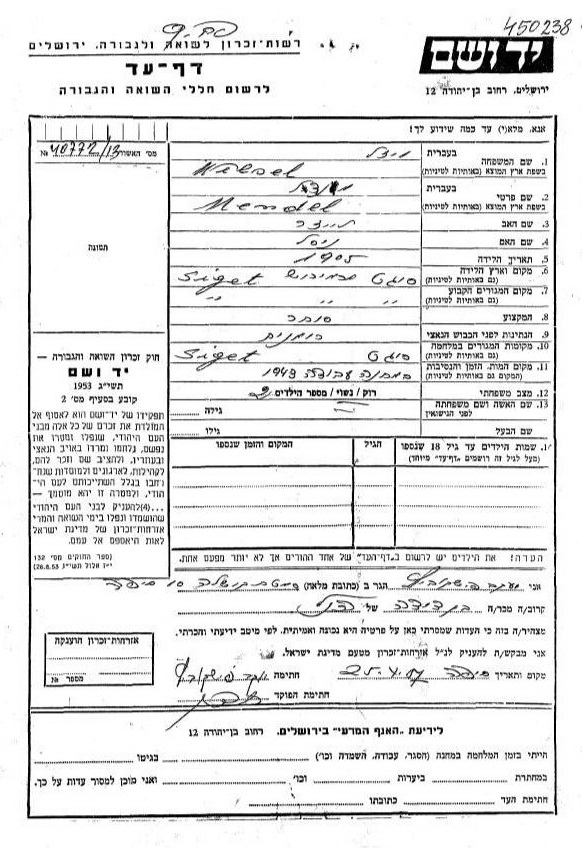 450238
יד ושם
ירושלים, רחוב בן-יהודה 12
רשות-זכרון לשואה ולגבורה, ירושלים
דף-עד
לרשום חללי השואה והגבורה
אנא, מלא(י) עד כמה שידוע לך!
מס׳ האשור
№ 40772/13
תמונה
1. שם המשפחה
בעברית ויזל
בשפת ארץ המוצא (באותיות לטיניות) Wiesel
2. שם פרטי
בעברית
בשפת ארץ המוצא (באותיות לטיניות) Mendel
3. שם האב
4. שם האם
5. תאריך הלידה 1905
6. מקום וארץ הלידה
(גם באותיות לטיניות) סיגט Siget
7. מקום המגורים הקבוע
(גם באותיות לטיניות) " " "
8. המקצוע סוחר
9. הנתינות לפני הכבוש הנאצי רומנית
10. מקומות המגורים במלחמה
(גם באותיות לטיניות) סיגט Siget
11. מקום המות, הזמן והנסיבות
(המקום גם באותיות לטיניות) במחנה עבודה 1943
12. מצב משפחתי רוק / נשוי / מספר הילדים
13. שם האשה ושם משפחתה
לפני הנישואין
גילה
שם הבעל
גילו
חוק זכרון השואה והגבורה —
יד ושם
תשי״ג 1953
קובע בסעיף מס׳ 2
תפקידו של יד-ושם הוא לאסוף אל
המולדת את זכרם של כל אלה מבני
העם היהודי, שנפלו ומסרו את
נפשם, נלחמו ומרדו באויב הנאצי
ובעוזריו, ולהציב שם וזכר להם,
לקהילות, לארגונים ולמוסדות שנח־
רבו בגלל השתייכותם לעם היהודי, ולמטרה זו יהא מוסמך —
...(4) להעניק לבני העם היהודי
שהושמדו ונפלו בימי השואה והמרי
אזרחות-זכרון של מדינת ישראל
לאות היאספם אל עמם.
(ספר החוקים מס׳ 132
י״ז אלול תשי״ג 28.8.53)
14. שמות הילדים עד גיל 18 שנספו
(מעל לגיל זה רושמים „דף-עד״ מיוחד)
הגיל
המקום והזמן שנספו
הערה: את הילדים יש לרשום ב„דף-העד״ של אחד ההורים אך לא יותר מפעם אחת.
אני הגר ב (כתובת מלאה) חיפה
קרוב/ה מכר/ה של
מצהיר/ה בזה כי העדות שמסרתי כאן על פרטיה היא נכונה ואמיתית, לפי מיטב ידיעתי והכרתי.
אני מבקש/ת להעניק לנ״ל אזרחות-זכרון מטעם מדינת ישראל.
מקום ותאריך חיפה חתימה
חתימת הפוקד
אזרחות-זכרון הוענקה
מספר №
לידיעת „האגף המדעי״ בירושלים, רחוב בן-יהודה 12
הייתי בזמן המלחמה במחנה (הסגר, עבודה, השמדה וכו׳) בגיטו
במחתרת ביערות וכו׳ ואני מוכן למסור עדות על כך.
חתימת העד כתובתו